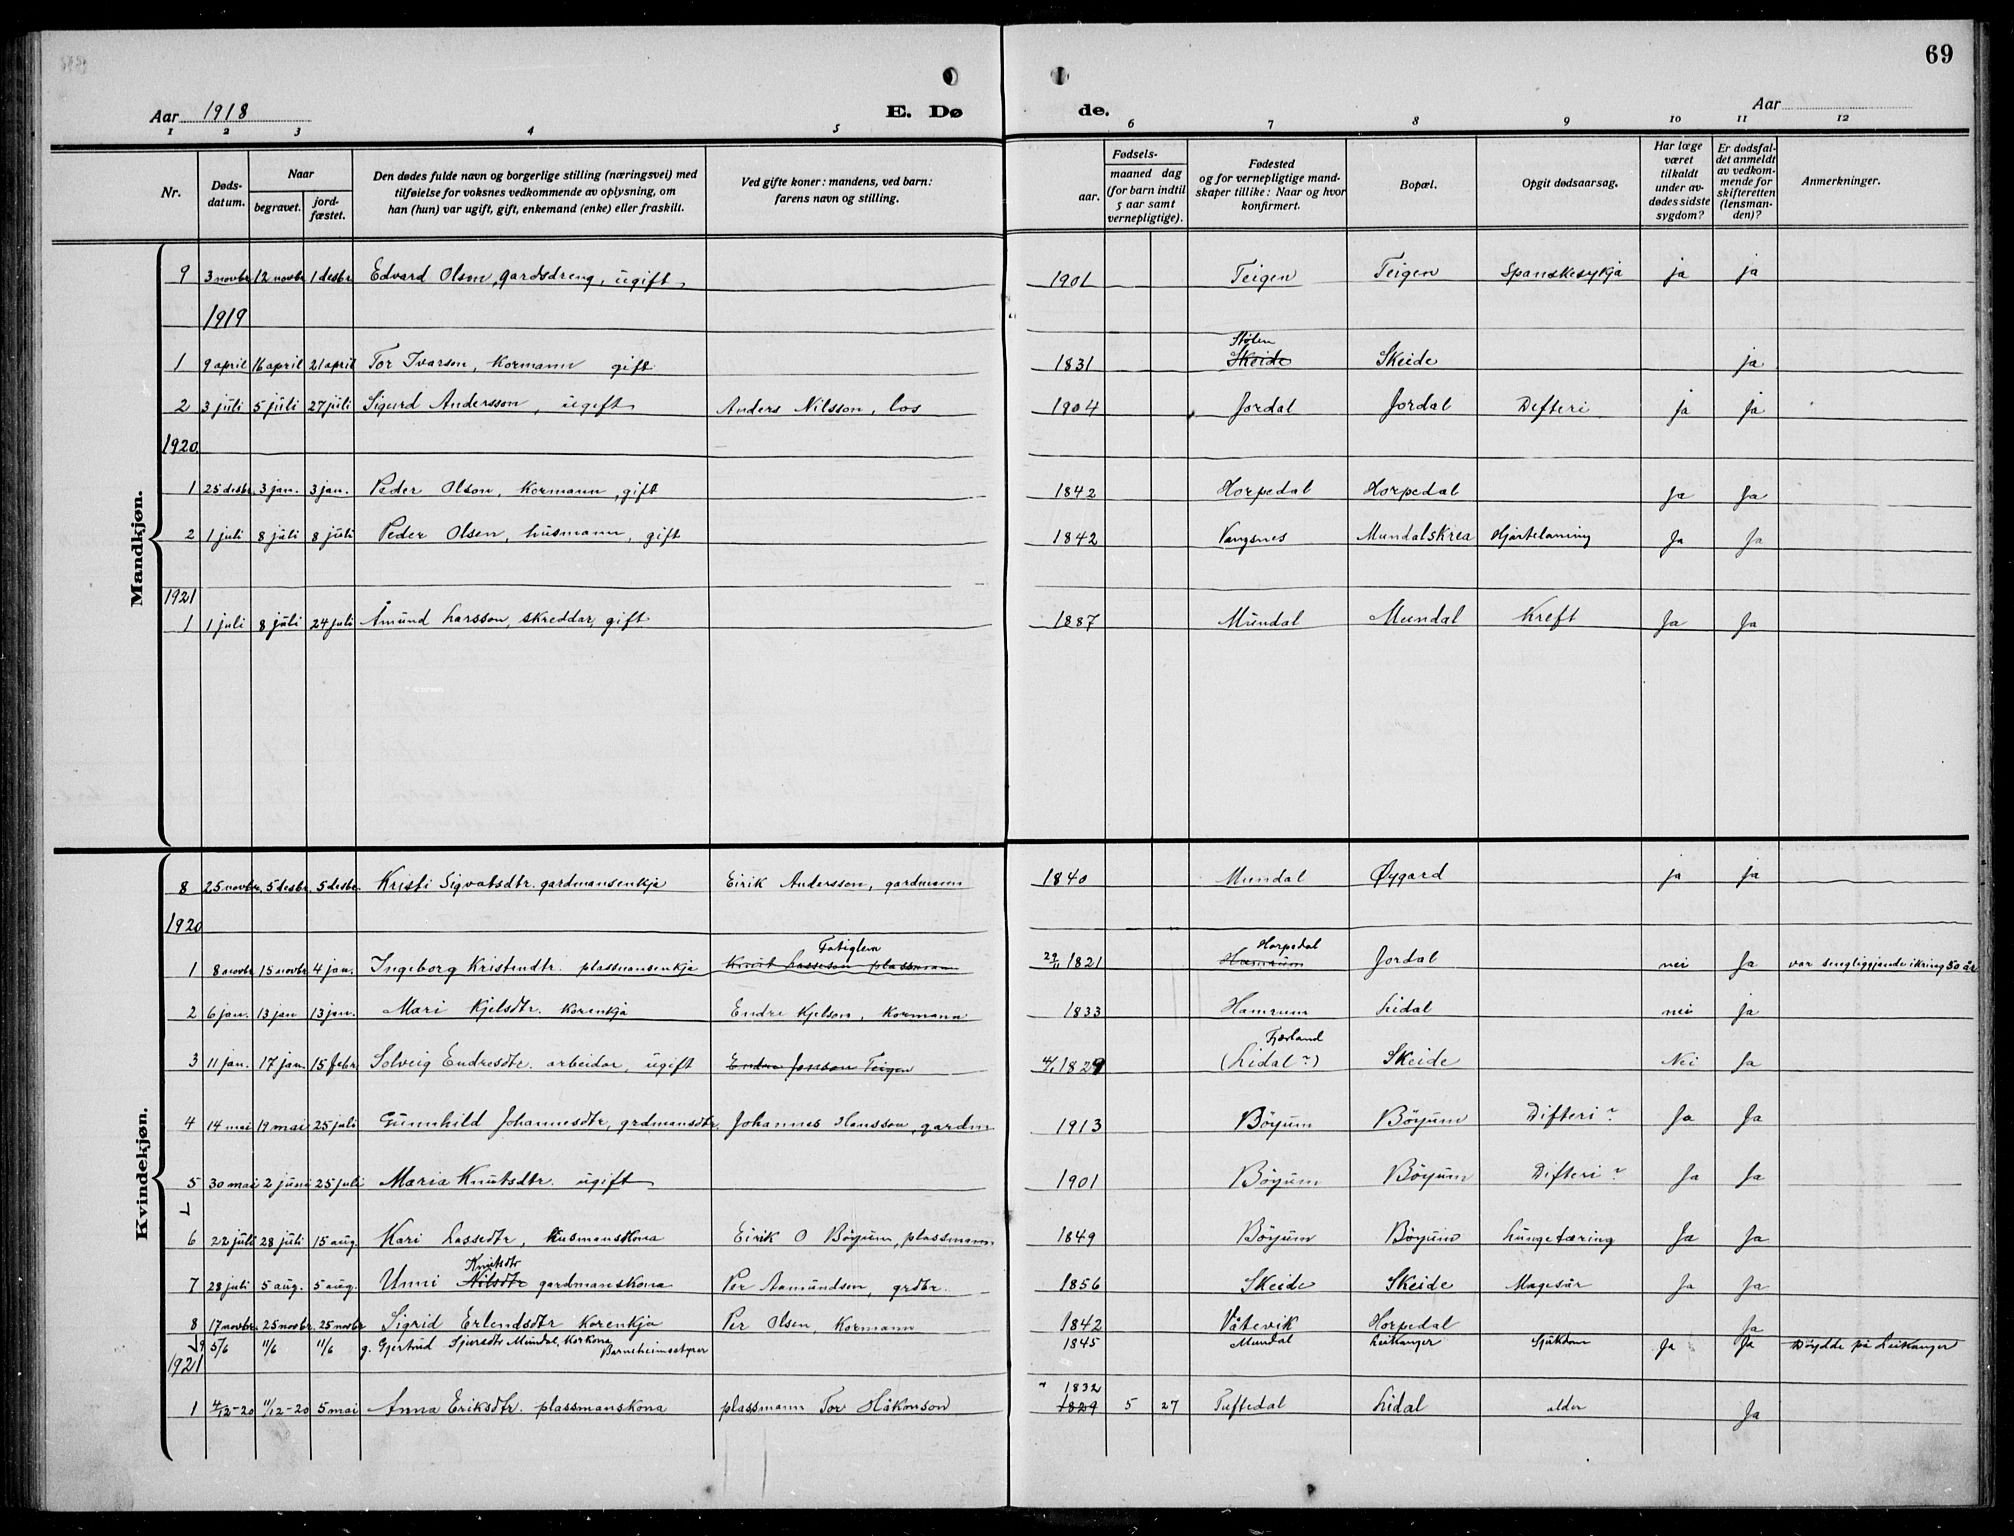 69
Aar 1918
E. Dø
de.
Aar
1 2 3 4 5 6 7 8 9 10 11 12
Nr.
Døds-
datum.
Naar
begravet.
jord-
fæstet.
Den dødes fulde navn og borgerlige stilling (næringsvei) med
tilføielse for voksnes vedkommende av oplysning, om
han (hun) var ugift, gift, enkemand (enke) eller fraskilt.
Ved gifte koner: mandens, ved barn:
farens navn og stilling.
Fødsels-
aar.
maaned dag
(for barn indtil
5 aar samt
vernepligtige).
Fødested
og for vernepligtige mand-
skaper tillike: Naar og hvor
konfirmert.
Bopæl.
Opgit dødsaarsag.
Har læge
været
tilkaldt
under av-
dødes sidste
sygdom?
Er dødsfal-
det anmeldt
av vedkom-
mende for
skifteretten
(lensman-
den)?
Anmerkninger.
Mandkjøn.
9 3 novbr 12 novbr 1 desbr Edvard Olson, gardsdreng, ugift 1901 Teigen Teigen Spanskesykja ja ja
1919
Stølen
1 9 april 16 april 21 april Tor Ivarson, Kormann gift 1831 Skeide Skeide ja
2 3 juli 5 juli 27 juli Sigurd Andersson, ugift Anders Nilsson, los 1904 Jordal Jordal Difteri ja ja
1920
1 25 desbr. 3 jan. 3 jan. Peder Olson, Kormann, gift 1842 Horpedal Horpedal Ja Ja
2 1 juli 8 juli 8 juli Peder Olsen, husmann, gift 1842 Vangsnes Mundalskrea Hjartelaming Ja Ja
1921
1 1 juli 8 juli 24 juli Åmund Larsson, skreddar, gift 1887 Mundal Mundal Kreft Ja Ja
Kvindekjøn.
8 25 novbr. 5 desbr. 5 desbr. Kristi Sigvatsdtr. gardmansenkja Eirik Andersson, gardmann 1840 Mundal Øygard ja ja
1920
Fatiglem Horpedal
1 8 novbr 15 novbr 4 jan. Ingeborg Kristendtr. plassmansenkja Knut Lasseson plassmann 29/11 1821 Hamrum Jordal nei Ja var sengliggjande ikring 50 år
2 6 jan. 13 jan 13 jan. Mari Kjelsdtr. Korenkja Endre Kjelson, Kormann 1833 Hamrum Lidal nei ja
Fjærland
3 11 jan. 17 jan. 15 febr. Solveig Endresdtr. arbeidar, ugift Endre Jonson Teigen 4/1 1829 (Lidal?) Skeide Nei Ja
4 14 mai 19 mai 25 juli Gunnhild Johannesdtr, grdmansdtr. Johannes Hansson, gardm 1913 Böyum Böyum Difteri? Ja Ja
5 30 mai 2 juni 25 juli Maria Knutsdtr. ugift 1901 Böyum Böyum Difteri? Ja Ja
6 22 juli 28 juli 15 aug. Kari Lassedtr, husmanskona Eirik O Böyum, plassmann 1849 Böyum Böyum Lungetæring Ja Ja
Knutsdtr
7 28 juli 5 aug. 5 aug. Unni Nilsdtr gardmanskona Per Aamundsen, grdbr. 1856 Skeide Skeide Magesår Ja Ja
8 17 novbr. 25 novbr. 25 novbr Sigrid Erlendsdtr Korenkja Per Olsen, Kormann 1842 Våtevik Horpedal Ja
9 5/6 11/6 11/6 g. Gjertrud Sjursdtr Mundal, Korkona Barneheimsstyrer 1845 Mundal Leikanger Sjukdom Ja Ja Döydde på Leikanger
1921
1832
1 4/12-20 11/12-20 5 mai Anna Eriksdtr. plassmanskona plassmann Tor Håkonson 1829 5 27 Tuftedal Lidal alder Ja